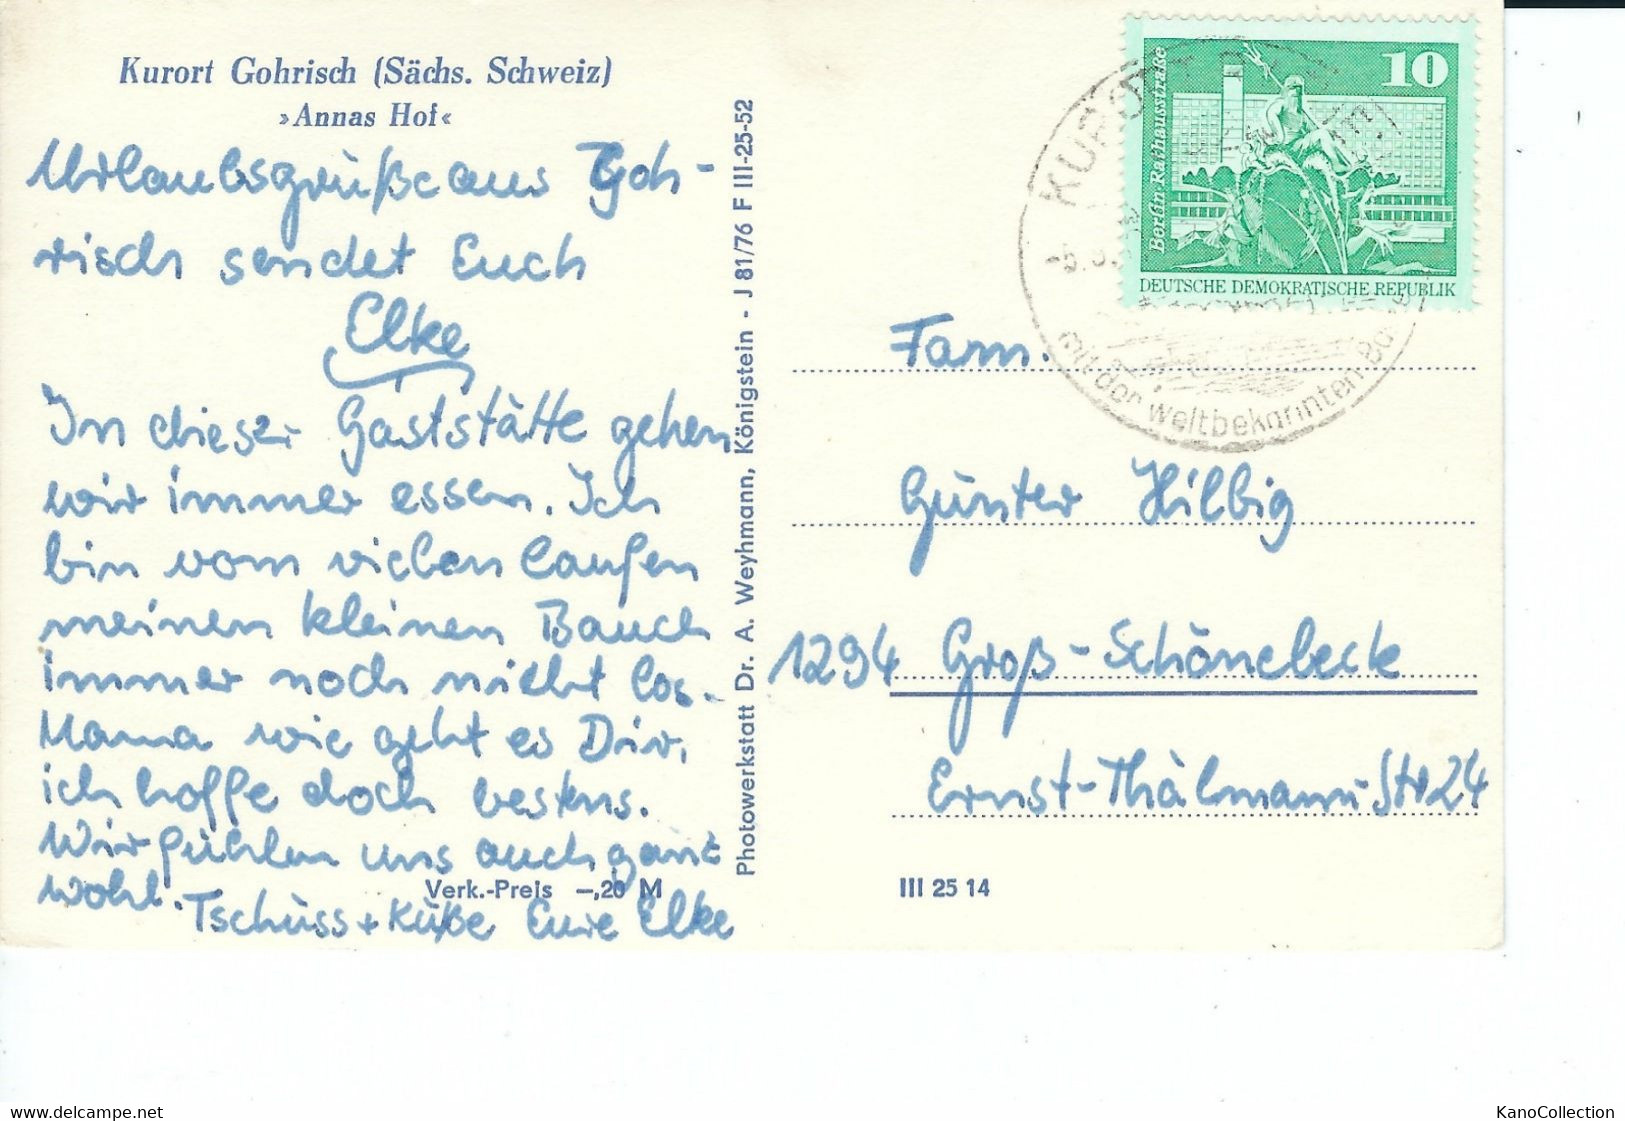 Kurort Gohrisch (Sächs. Schweiz)
»Annas Hof«
Urlaubsgrüße aus Goh-
risch sendet Euch
Elke
In dieser Gaststätte gehen
wir immer essen. Ich
bin vom vielen laufen
meinen kleinen Bauch
immer noch nicht los.
Mama wie geht es Dir,
ich hoffe doch bestens.
Wir fühlen uns auch ganz
wohl.
Tschüss + Küße Eure Elke
Verk.-Preis —,20 M
Photowerkstatt Dr. A. Weyhmann, Königstein - J 81/76 F III-25-52
10
Berlin-Rathausstraße
DEUTSCHE DEMOKRATISCHE REPUBLIK
KURORT
mit der weltbekannten
Fam.
Günter Hilbig
1294 Groß-Schönebeck
Ernst-Thälmann-Str 24
III 25 14
www.delcampe.net
KanoCollection